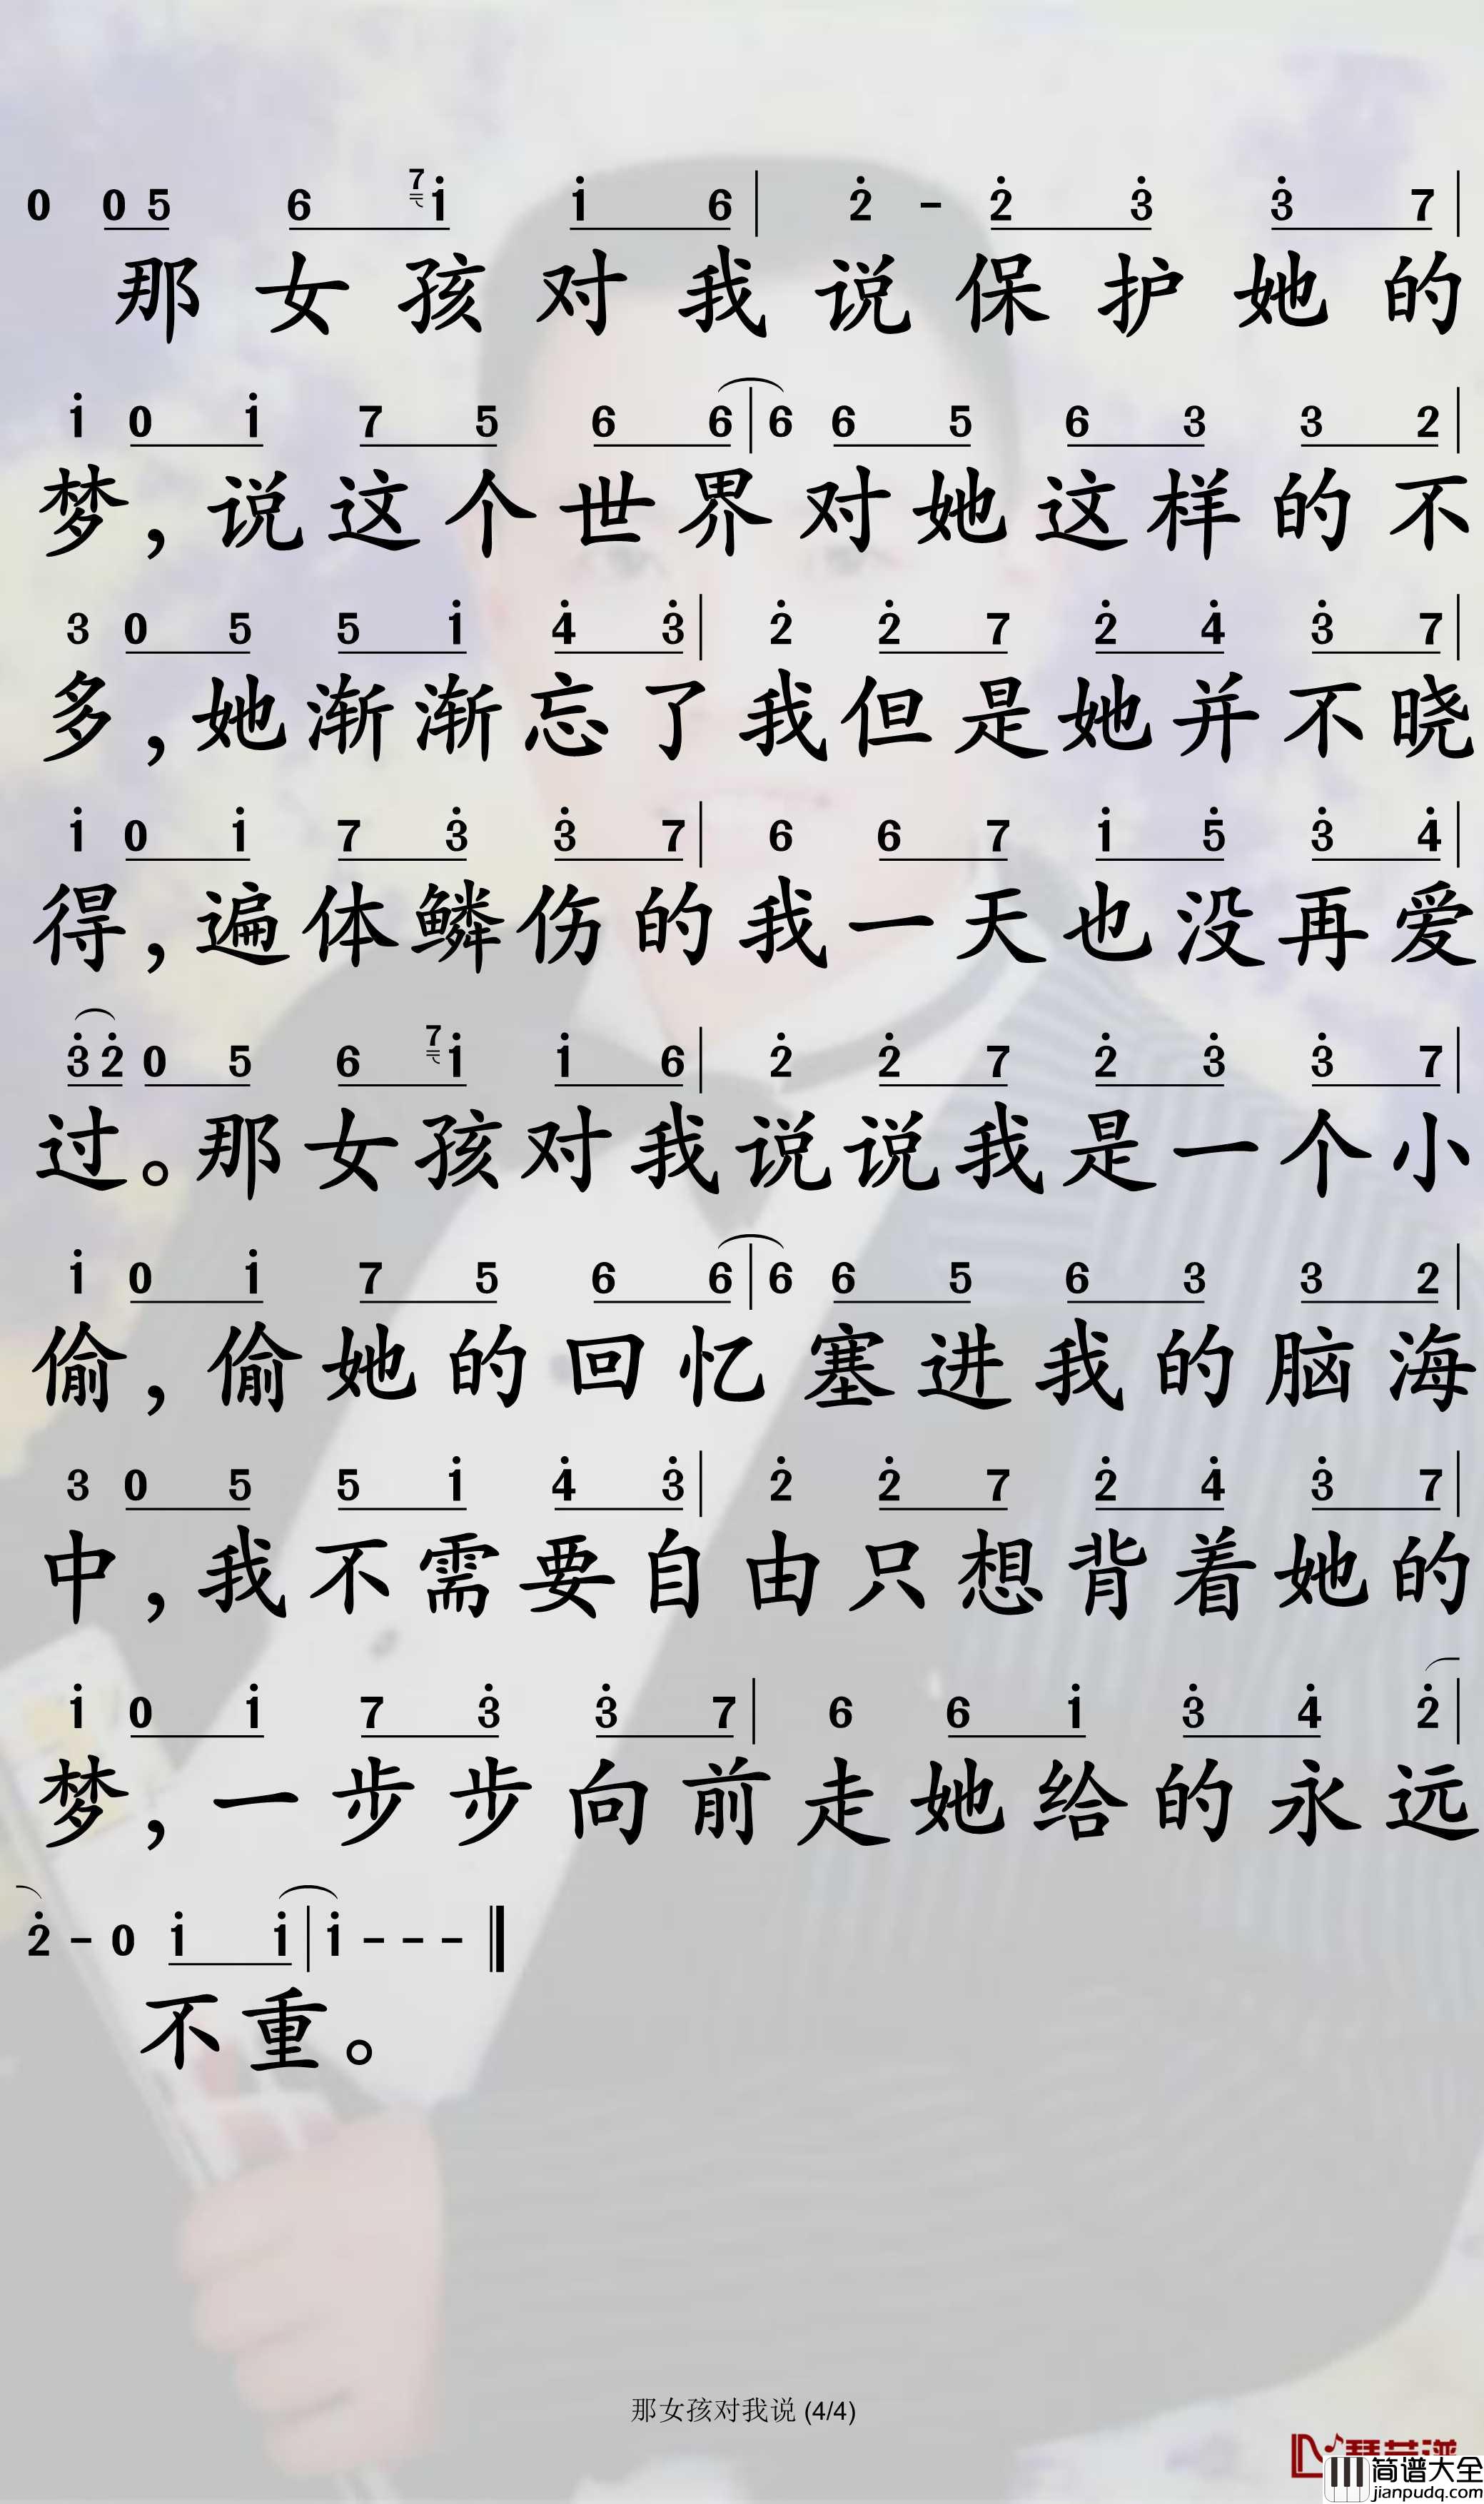 0 0 5 6 7 1 1 6 | 2 - 2 3 3 7 |
那女孩对我说保护她的
1 0 1 7 5 6 6 | 6 6 5 6 3 3 2 |
梦,说这个世界对她这样的不
3 0 5 5 1 4 3 | 2 2 7 2 4 3 7 |
多,她渐渐忘了我但是她并不晓
1 0 1 7 3 3 7 | 6 6 7 1 5 3 4 |
得,遍体鳞伤的我一天也没再爱
3 2 0 5 6 7 1 1 6 | 2 2 7 2 3 3 7 |
过。那女孩对我说说我是一个小
1 0 1 7 5 6 6 | 6 6 5 6 3 3 2 |
偷,偷她的回忆塞进我的脑海
3 0 5 5 1 4 3 | 2 2 7 2 4 3 7 |
中,我不需要自由只想背着她的
1 0 1 7 3 3 7 | 6 6 1 3 4 2 |
梦,一步步向前走她给的永远
2 - 0 1 1 | 1 - - - ‖
不重。
那女孩对我说 (4/4)
简谱大全
jianpudq.com